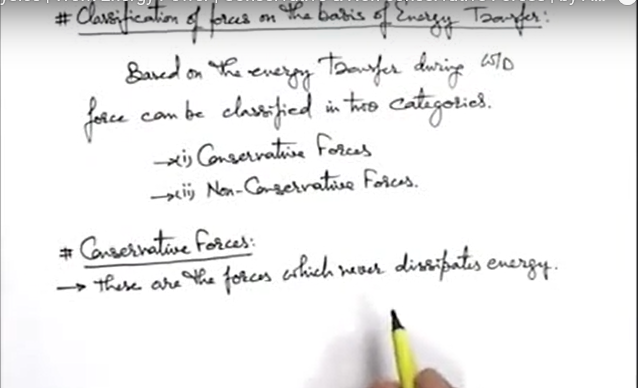 # Classification of forces on the basis of Energy Transfer:
Based on the energy Transfer during W/D
force can be classified in two categories.
→(i) Conservative Forces
→(ii) Non-Conservative Forces.
# Conservative Forces:
→ These are the forces which never dissipates energy.